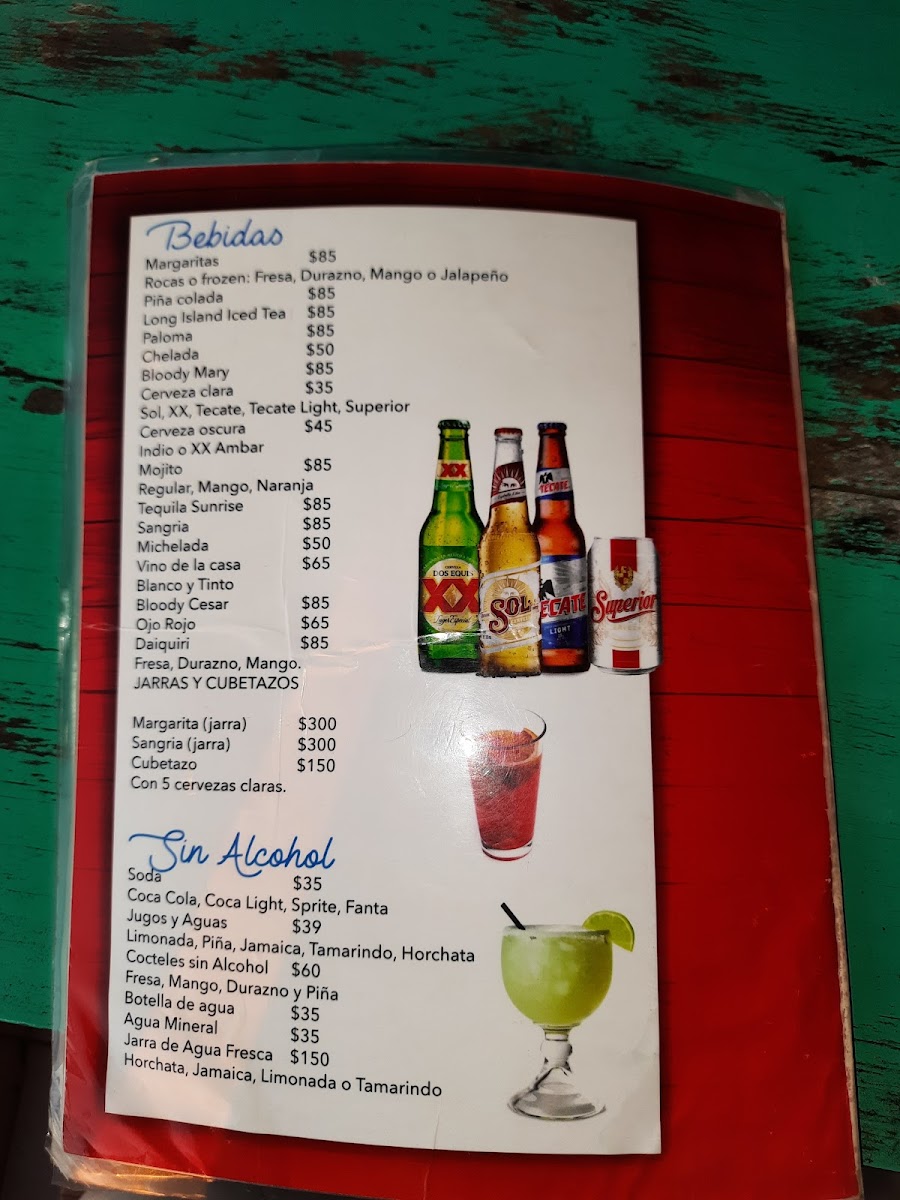 Bebidas
Margaritas $85
Rocas o frozen: Fresa, Durazno, Mango o Jalapeño
Piña colada $85
Long Island Iced Tea $85
Paloma $85
Chelada $50
Bloody Mary $85
Cerveza clara $35
Sol, XX, Tecate, Tecate Light, Superior
Cerveza oscura $45
Indio o XX Ambar
Mojito $85
Regular, Mango, Naranja
Tequila Sunrise $85
Sangria $85
Michelada $50
Vino de la casa $65
Blanco y Tinto
Bloody Cesar $85
Ojo Rojo $65
Daiquiri $85
Fresa, Durazno, Mango.
JARRAS Y CUBETAZOS
Margarita (jarra) $300
Sangria (jarra) $300
Cubetazo $150
Con 5 cervezas claras.
XX
DOS EQUIS
XX
Lager Especial
SOL
TECATE
ECATE
LIGHT
Superior
Sin Alcohol
Soda $35
Coca Cola, Coca Light, Sprite, Fanta
Jugos y Aguas $39
Limonada, Piña, Jamaica, Tamarindo, Horchata
Cocteles sin Alcohol $60
Fresa, Mango, Durazno y Piña
Botella de agua $35
Agua Mineral $35
Jarra de Agua Fresca $150
Horchata, Jamaica, Limonada o Tamarindo